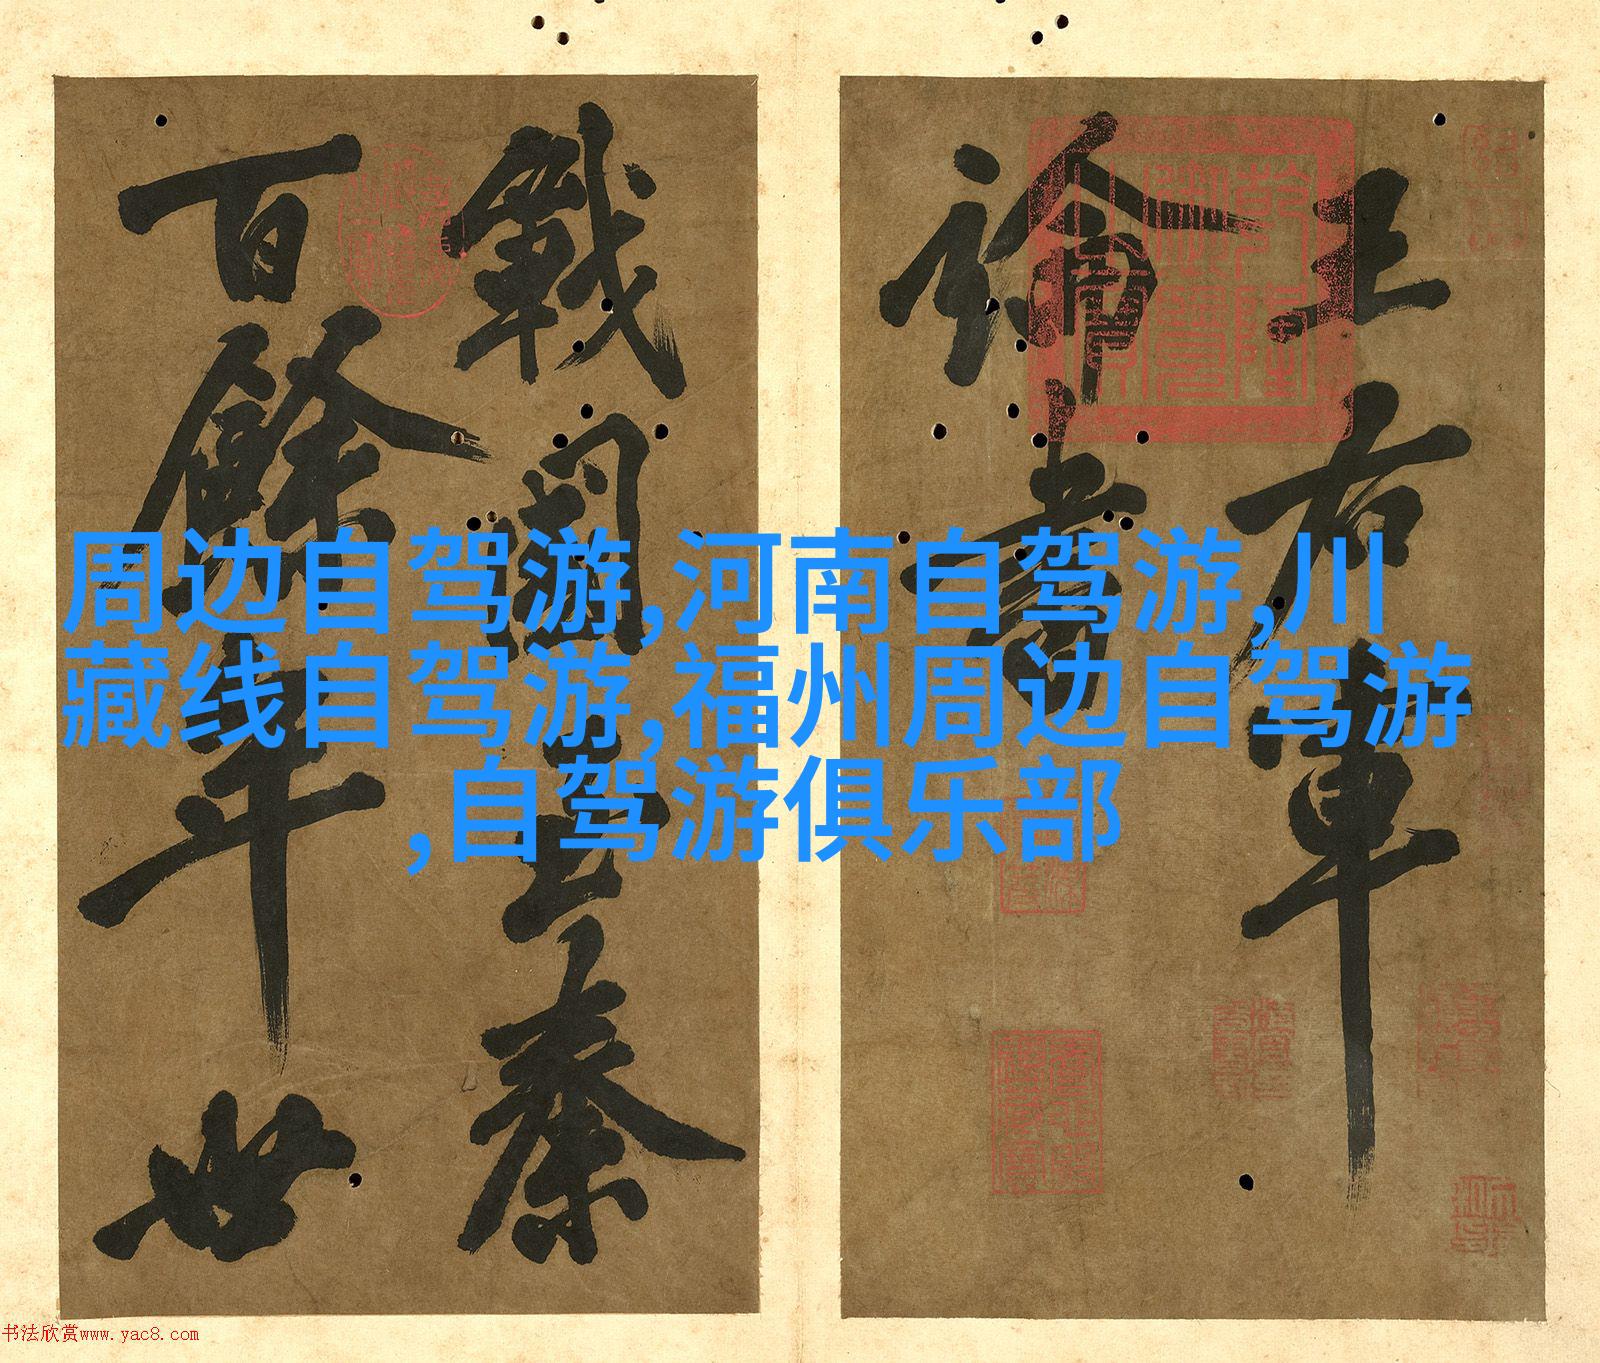 周边自驾游,河南自驾游,川
藏线自驾游,福州周边自驾游
,自驾游俱乐部
王右軍
論書
戰國至秦
百餘年世
乾隆御覽之寶
书法欣赏www.yac8.com